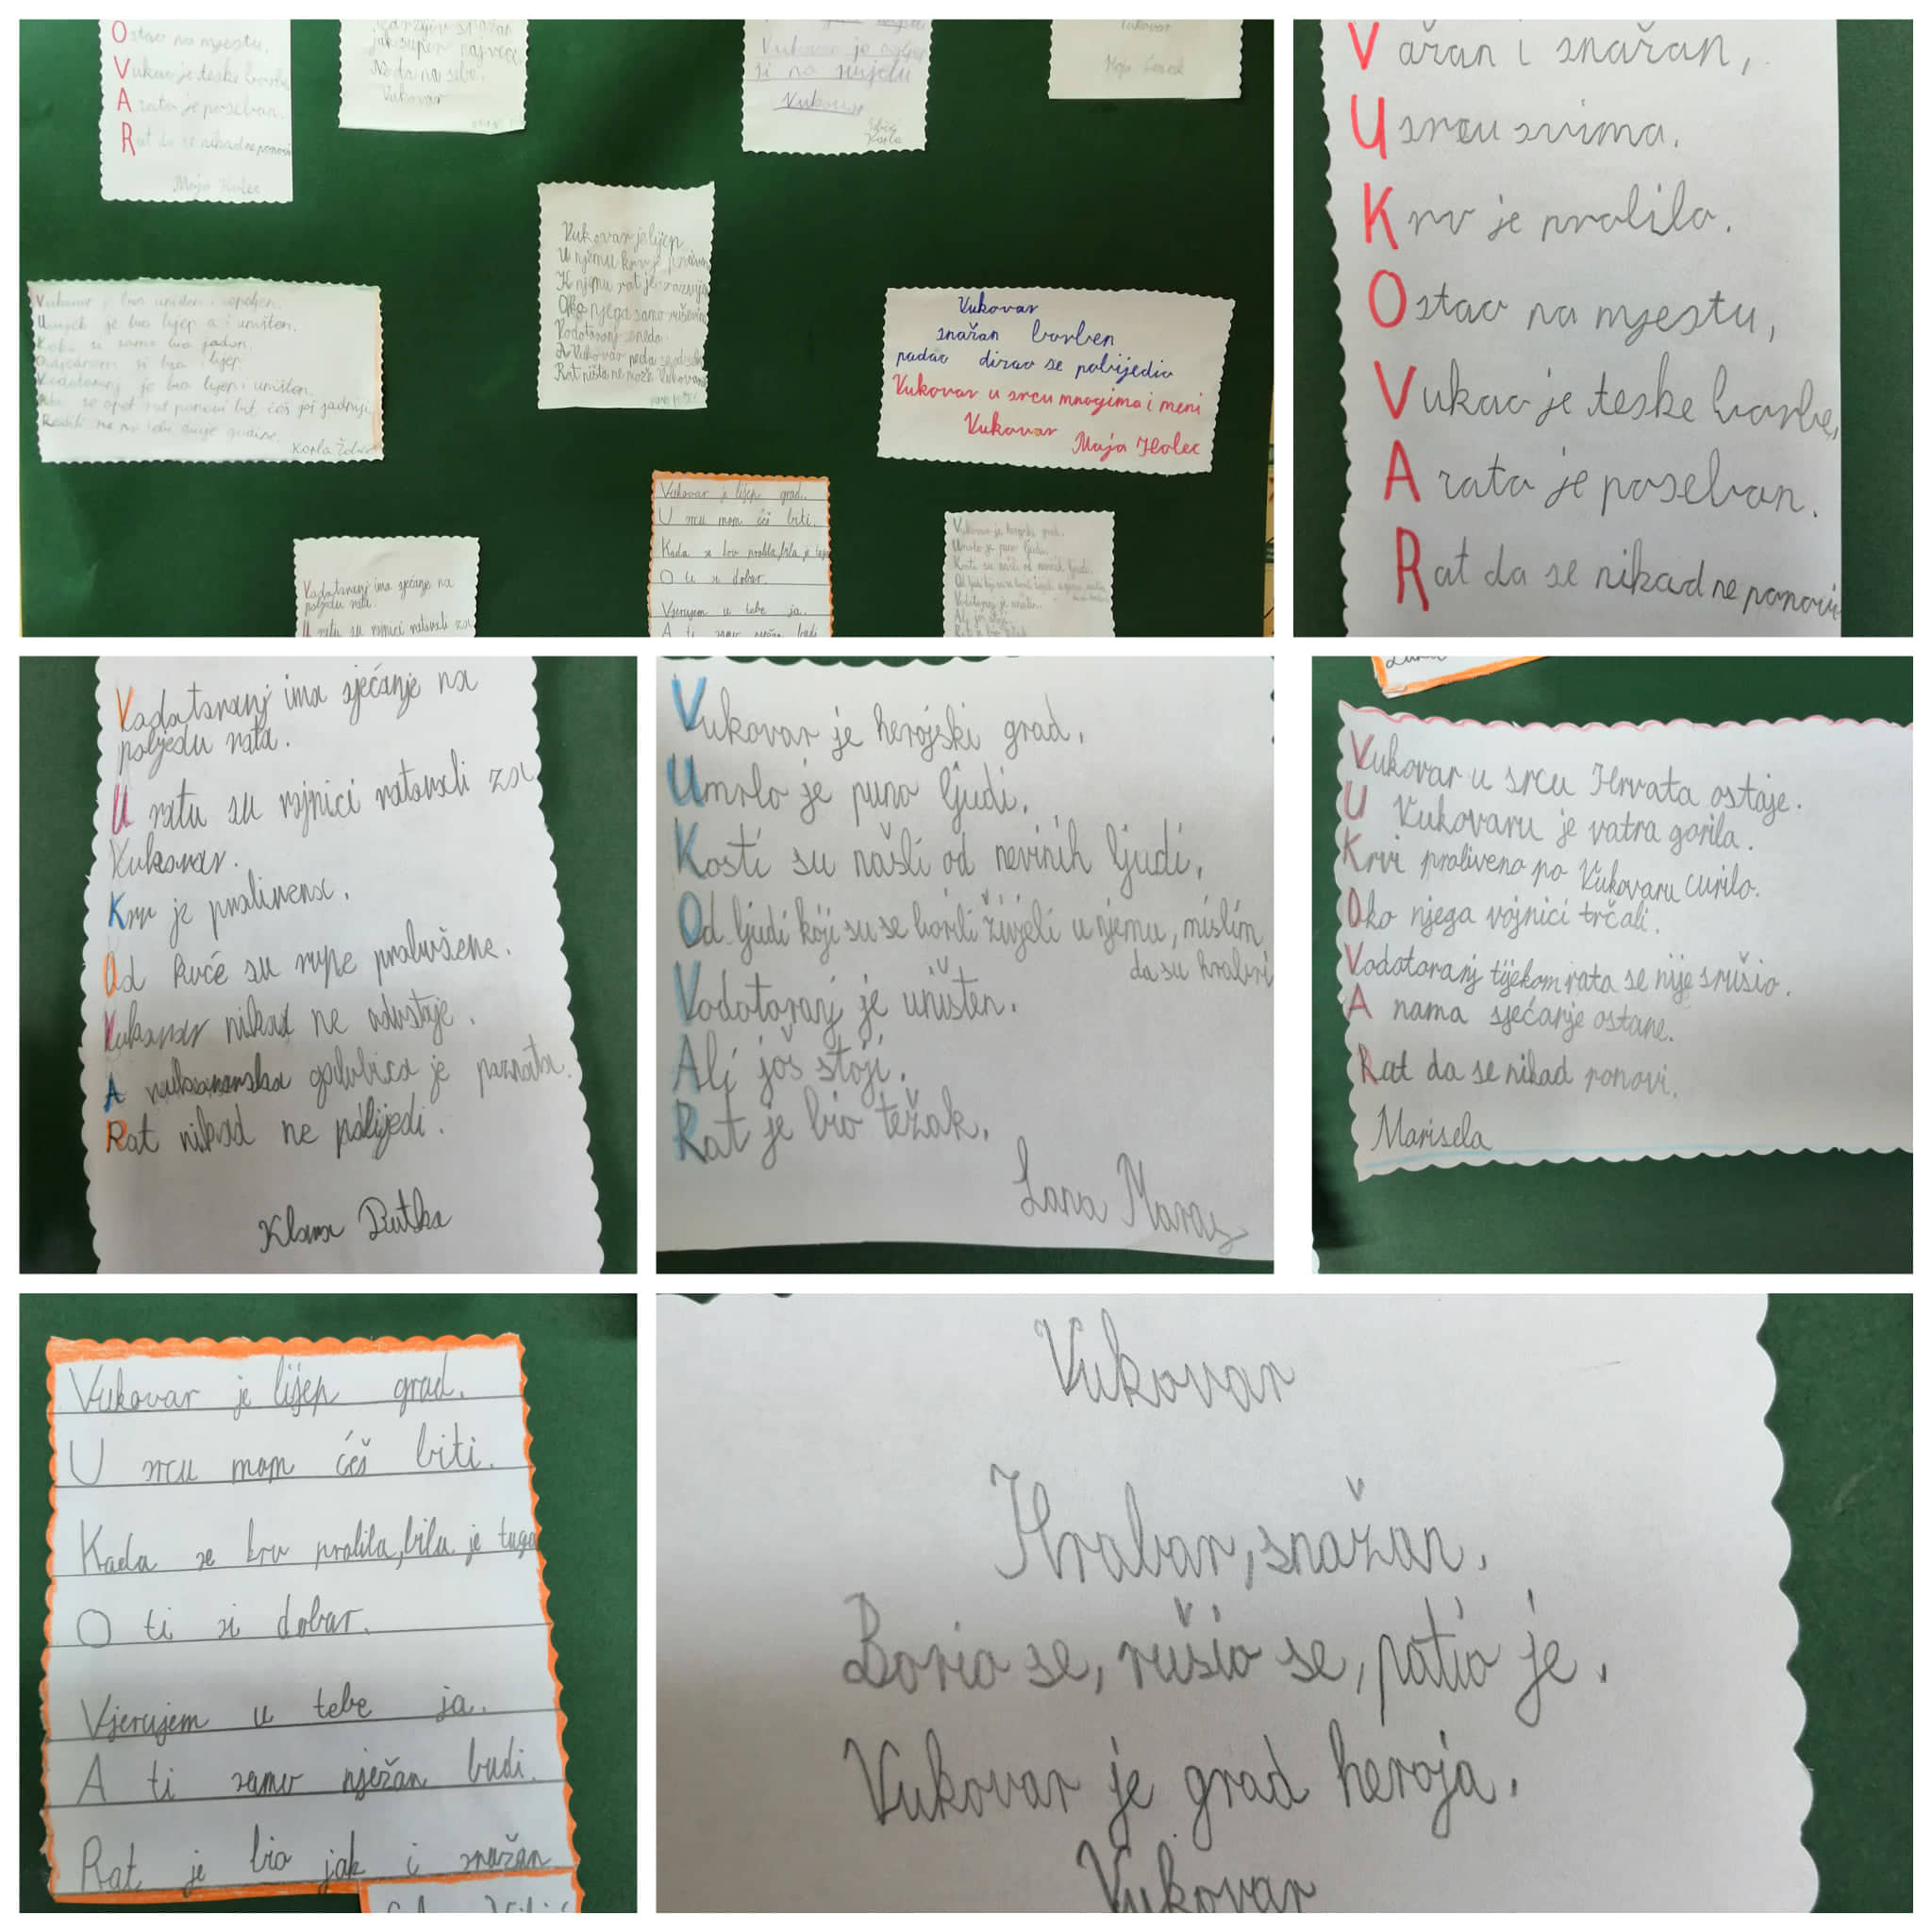 Ostao na mjestu,
Vukao je teske borbe,
A rata je poseban.
Rat da se nikad ne ponovi
Maja Holec
Nada na sebe.
Vukovar
Vukovar je
si na svijetu
Vukovar
Karla
Vukovar
Vukovar je lijep
U njemu krv je
K njemu rat je
Oko njega samo
Vodotoranj
A Vukovar
Rat ništa ne može Vukovaru
Vukovar je bio uništen i
je bio lijep a i uništen.
si samo bio jadan.
si bio lijep.
Vodotoranj je bio lijep i uništen.
se opet rat ponovi bit ćeš još jadniji.
Karla
Vukovar
snažan borben
padao dizao se pobijedio
Vukovar u srcu mnogima i meni
Vukovar
Maja Holec
Vukovar je lijep grad.
U srcu mom ćeš biti.
Kada se krv prolila, bila je tuga
O ti si dobar.
Vjerujem u tebe ja.
A ti samo nježan budi.
Vukovar je herojski grad.
Umrlo je puno ljudi.
Kosti su našli od nevinih ljudi.
Vodotoranj je uništen.
Ali još stoji.
Rat je bio težak.
Vodotoranj ima sjećanje na
poljedu rata.
U ratu su vojnici ratovali za
Važan i snažan,
U srcu svima.
Krv je prolila.
Ostao na mjestu,
Vukao je teske borbe,
A rata je poseban.
Rat da se nikad ne ponovi
Vodotoranj ima sjećanje na
poljedu rata.
U ratu su vojnici ratovali za
Vukovar.
Krv je prolivena.
Od kuće su rupe probušene.
Vukovar nikad ne odustaje.
A vukovarska golubica je poznata.
Rat nikad ne pobijedi.
Klara Dutka
Vukovar je herojski grad.
Umrlo je puno ljudi.
Kosti su našli od nevinih ljudi.
Od ljudi koji su se borili živjeli u njemu, mislim
da su hrabri
Vodotoranj je uništen.
Ali još stoji.
Rat je bio težak.
Lana Maras
Vukovar u srcu Hrvata ostaje.
U Vukovaru je vatra gorila.
Krvi proliveno po Vukovaru curilo.
Oko njega vojnici trčali.
Vodotoranj tijekom rata se nije srušio.
A nama sjećanje ostane.
Rat da se nikad ponovi.
Marisela
Vukovar je lijep grad.
U srcu mom ćeš biti.
Kada se krv prolila, bila je tuga
O ti si dobar.
Vjerujem u tebe ja.
A ti samo nježan budi.
Rat je bio jak i snažan
Vukovar
Hrabar, snažan.
Borio se, rušio se, patio je.
Vukovar je grad heroja.
Vukovar